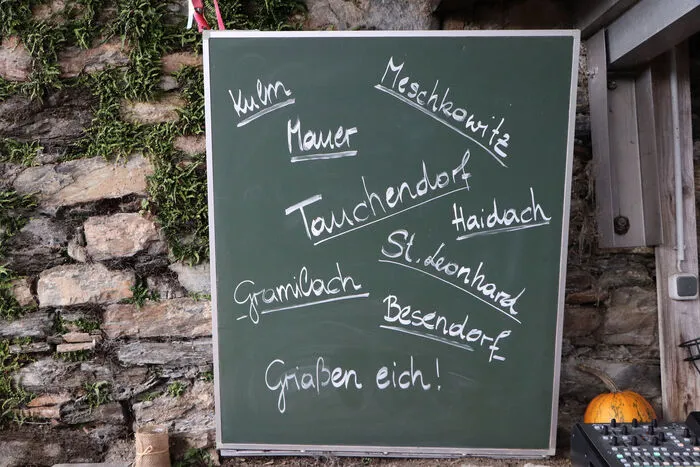 Kulm
Meschkowitz
Mauer
Tauchendorf
Haidach
St. Leonhard
Gramilach
Besendorf
Griaßen eich!